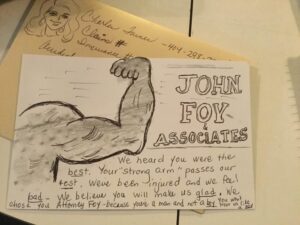 Claim #
Insurance #
JOHN
FOY
&
ASSOCIATES
We heard you were the
best. Your "strong arm" passes our
test. We've been injured and we feel
bad - We believe you will make us glad. We
chose you Attorney Foy - because your a man and not a boy. You